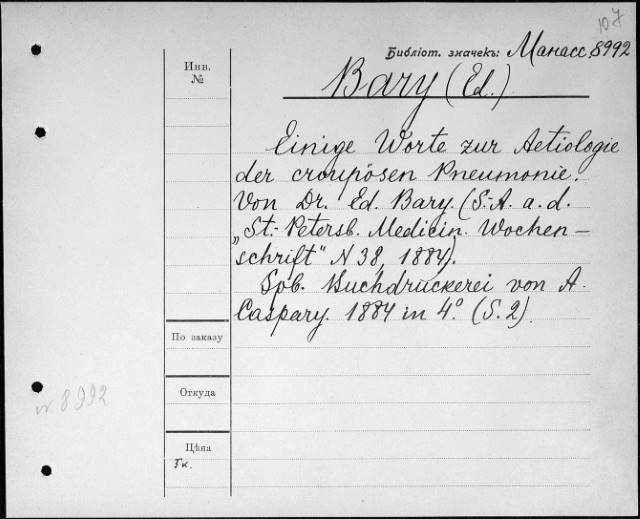 107
Библіот. значекъ: Манасс. 8992
Инв.
№
Bary (Ed.)
Einige Worte zur Aetiologie
der croupösen Pneumonie.
Von Dr. Ed. Bary. (S.-A. a. d.
„St.-Petersb. Medicin. Wochen-
schrift" N 38, 1884).
Spb. Buchdruckerei von A.
Caspary. 1884 in 4.° (S. 2).
По заказу
Откуда
8992
Цѣна